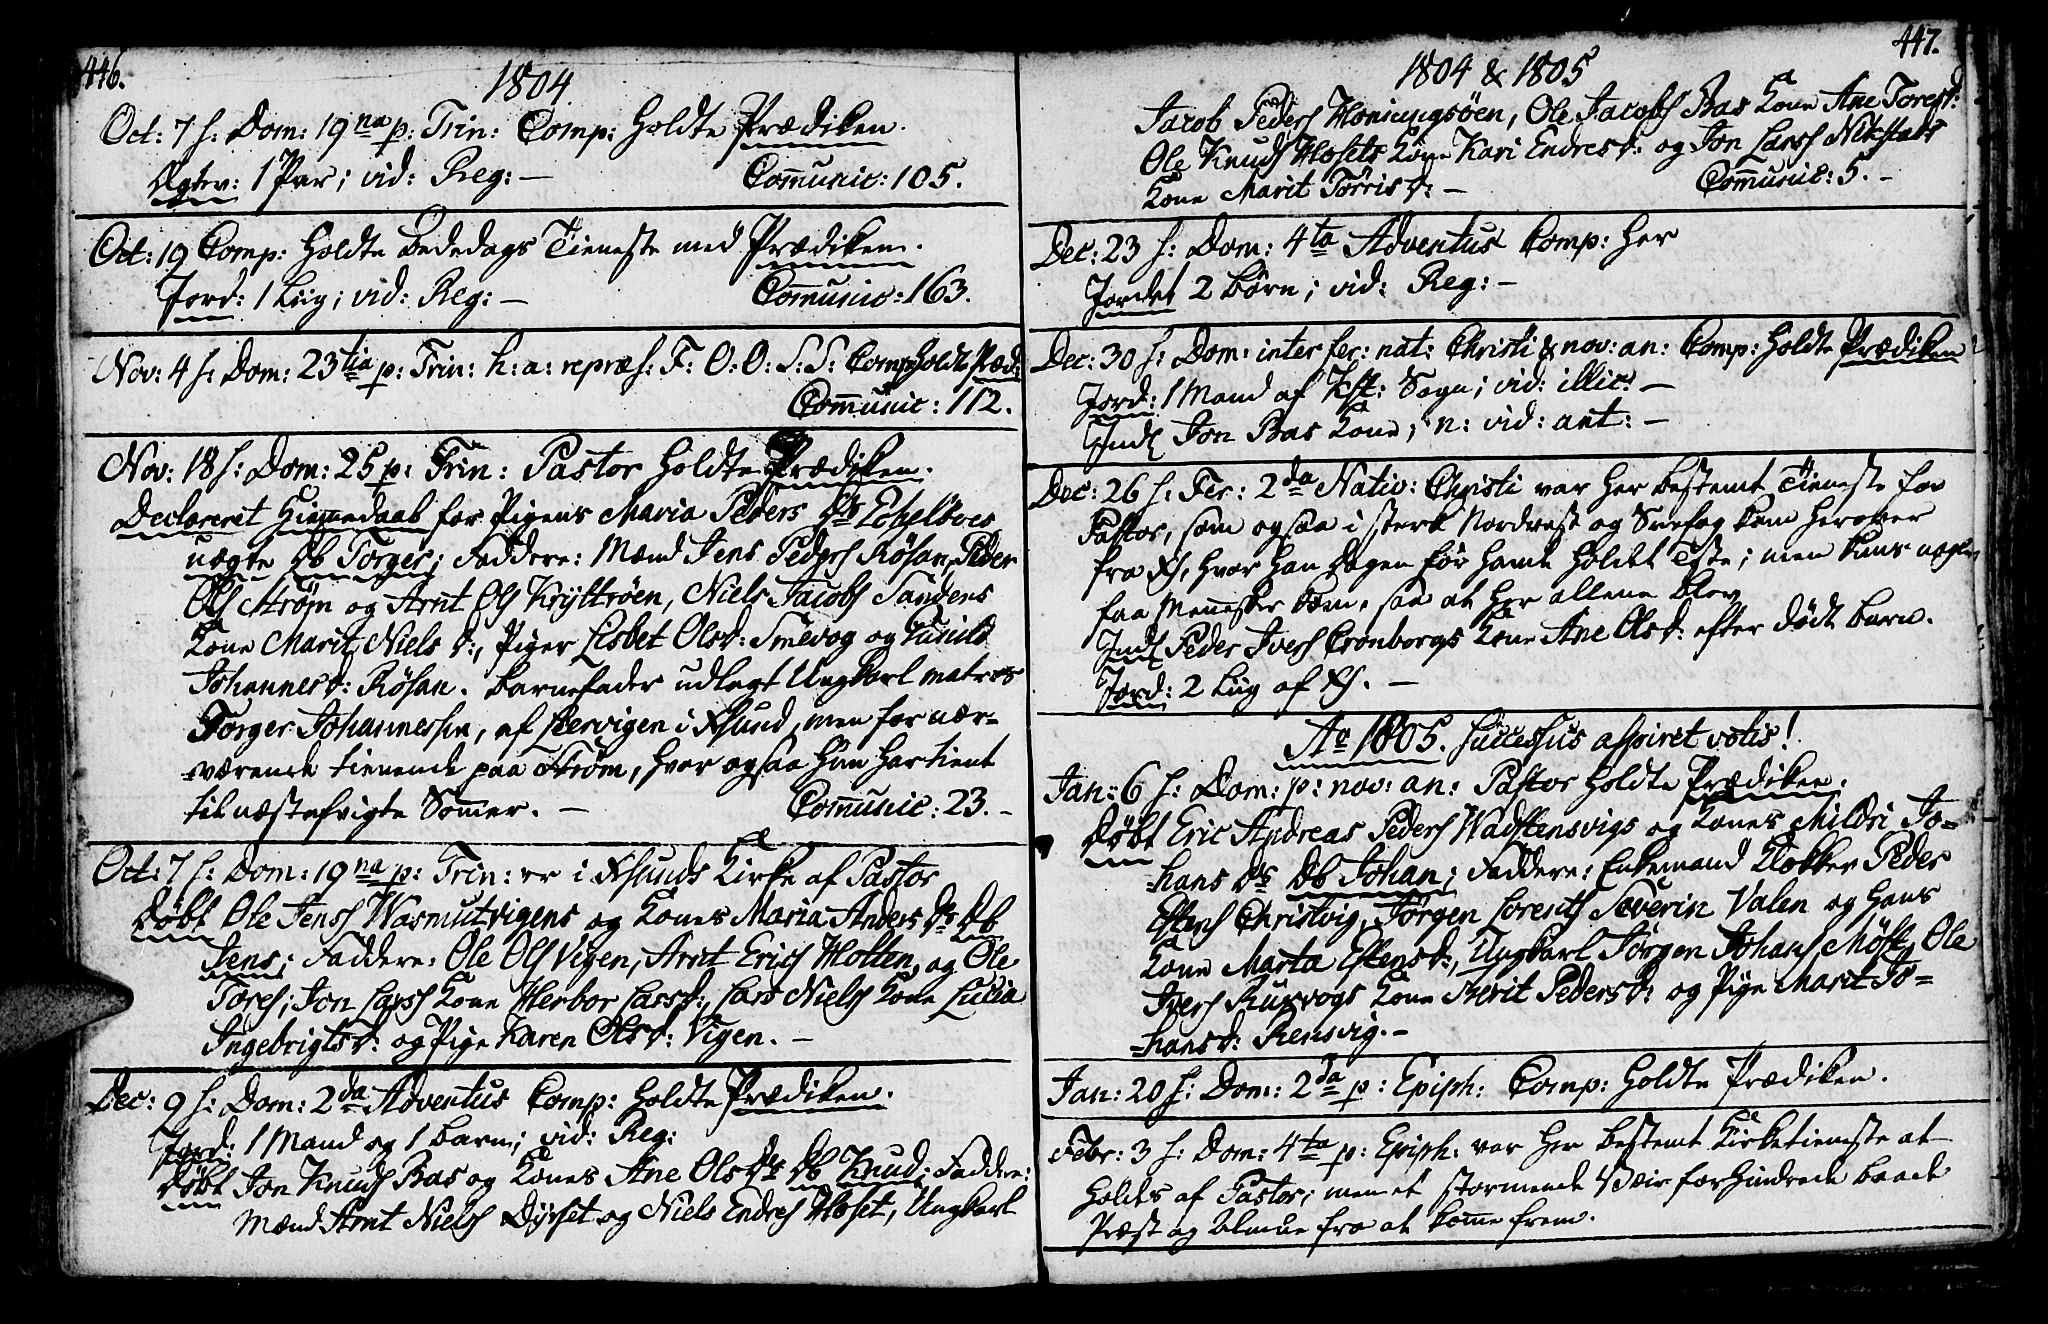 446.
1804
Oct: 7 s: Dom: 19na p: Trin: Comp: holdte Prædiken.
Ægtev: 1 Par; vid: Reg: — Com̄unic: 105.
Oct: 19 Comp: holdte Bededags Tieneste med Prædiken.
Jord: 1 Liig; vid: Reg: — Com̄unic: 163.
Nov: 4 s: Dom: 23tia p: Trin: h: a: repræs: F: O: O: S: S: Comp: holdte Præd:
Com̄unic: 112.
Nov: 18 s: Dom: 25 p: Trin: Pastor holdte Prædiken.
Declareret Hiem̄edaab for Pigens Maria Peders Ds
uægte Db Torger; Faddere: Mænd Jens Peders Røsan, Peder
Ols Strøm og Arnt Ols Kryttrøen, Niels Jacobs Sandens
Kone Marit Niels D:, Piger Lisbet Ols D: Smevog og Gunild
Johannes D: Røsan. Barnefader udlagt Ungkarl
Torger Johannessen, af Leervigen i Xsund, men for nær-
værende tienende paa Strøm, hvor ogsaa hun har tient
til næstafvigte Som̄er. — Com̄unic: 23. -
Oct: 7 s: Dom: 19na p: Trin: er i Xsunds Kirke af Pastor
Døbt Ole Jens Wasmutvigens og Kones Maria Anders Ds Db
Jens; Faddere: Ole Ols Vigen, Arnt Erics Molten, og Ole
Tores; Jon Lars Kone Herbor Lars D:, Lars Niels Kone Lucia
Ingebrigts D: og Pige Karen Ols D: Vigen. —
Dec: 9 s: Dom: 2da Adventus Comp: holdte Prædiken.
Jord: 1 Mand og 1 Barn; vid: Reg:
Døbt Jon Knuds Bas og Kones Ane Ols Ds Db Knud; Faddere:
Mænd Arnt Niels Dyrset og Niels Endres Hoset, Ungkarl
447.
1804 & 1805
Jacob Peders Honningsøen, Ole Jacobs Bas Kone Ane Tores D:
Ole Knuds Hosets Kone Kari Endres D: og Jon Lars Nekstads
Kone Marit Torris D: — Com̄unic: 5. -
Dec: 23 s: Dom: 4ta Adventus Comp: her
Jordet 2 Børn; vid: Reg: —
Dec: 30 s: Dom: inter fer: nat: Christi & nov: an: Comp: holdte Prædiken
Jord: 1 Mand af Sogn; vid: illic: —
Indl Jon Bas Kone; n: vid: ant: —
Dec: 26 s: Fer: 2da Nativ: Christi var her bestemt Tieneste for
Pastor, som ogsaa i sterk Nordvest og Sneefog kom herover
fra Xs, hvor han Dagen før havde holdet Tste; men kuns nogle
faa Mennesker kom, saa at her allene blev
Indl Peder Ivers Cronborgs Kone Ane Ols D: efter dødt Barn.
Jord: 2 Liig af Xs. —
Ao 1805. Successus aspiret votis!
Jan: 6 s: Dom: p: nov: an: Pastor holdte Prædiken.
Døbt Eric Andreas Peders Wadstensvigs og Kones Mildri Jo-
-hans Ds Db Johan; Faddere: Enkemand Klokker Peder
Estens Christvig, Jørgen Lorents Severin Valen og hans
Kone Marta Estens D:, Ungkarl Jørgen Johans Møst, Ole
Ivers Ruxvogs Kone Berit Peders D: og Pige Marit Jo-
-hans D: Rensvig. —
Jan: 20 s: Dom: 2da p: Epiph: Comp: holdte Prædiken.
Febr: 3 s: Dom: 4ta p: Epiph: var her bestemt Kirketieneste at
holdes af Pastor; men et stormende Veir forhindrede baade
Præst og Almue fra at kom̄e frem.